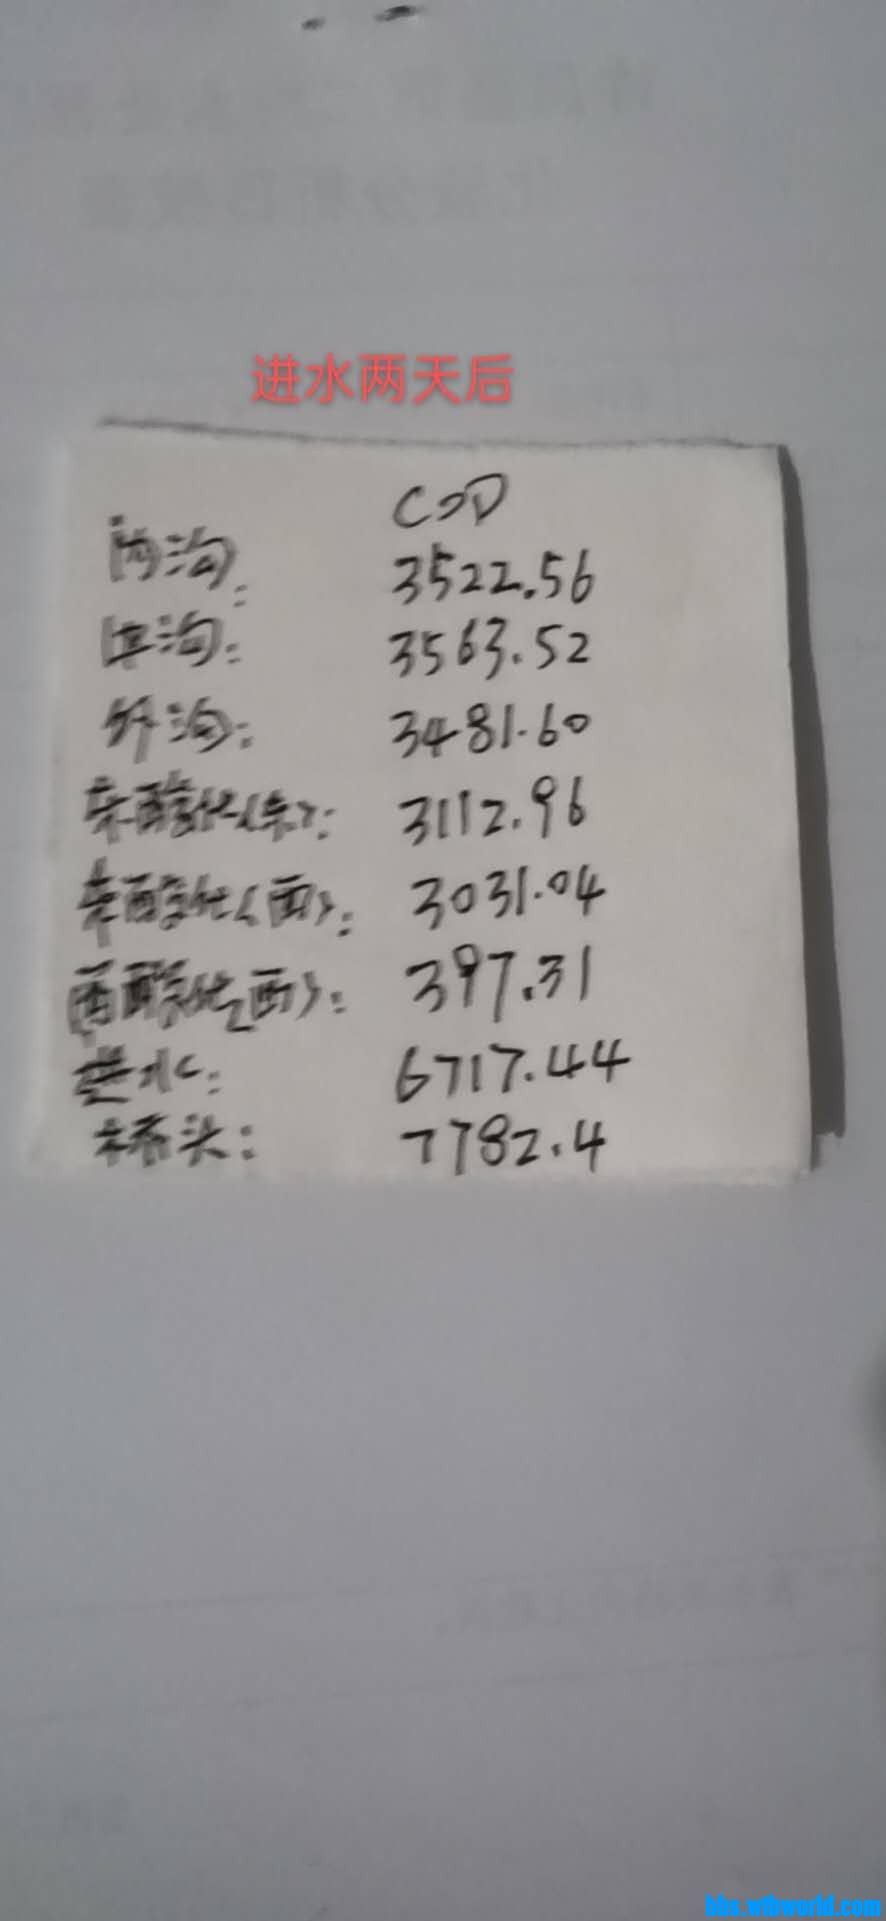 进水两天后
COD
内沟: 3522.56
中沟: 3563.52
外沟: 3481.60
东酸化(东): 3112.96
东酸化(西): 3031.04
西酸化(西): 397.31
进水: 6717.44
桥头: 7782.4
bbs.wtbworld.com